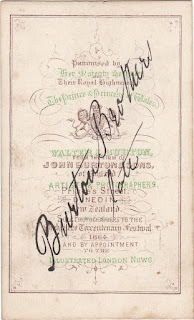 Patronised by
Her Majesty the
Their Royal Highnesses
The Prince & Princess of Wales
WALTER BURTON,
FROM THE FIRM OF
JOHN BURTON & SONS,
ARTISTS & PHOTOGRAPHERS
PRINCES STREET
DUNEDIN
New Zealand.
PHOTOGRAPHERS TO THE
Tercentenary Festival
1864
AND BY APPOINTMENT
TO THE
ILLUSTRATED LONDON NEWS
Burton Brothers
Late